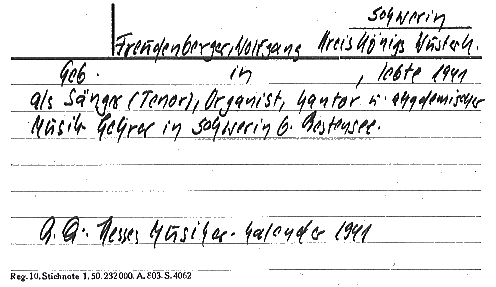 Schwerin
Freudenberger, Wolfgang Kreis Königs Wusterh.
Geb. in , lebte 1941
als Sänger (Tenor), Organist, Kantor u. akademischer
Musik Lehrer in Schwerin b. Bestensee.
Q. A. Hesses Musiker-Kalender 1941
Reg. 10. Stichnote 1. 50. 232000. A. 803. S. 4062